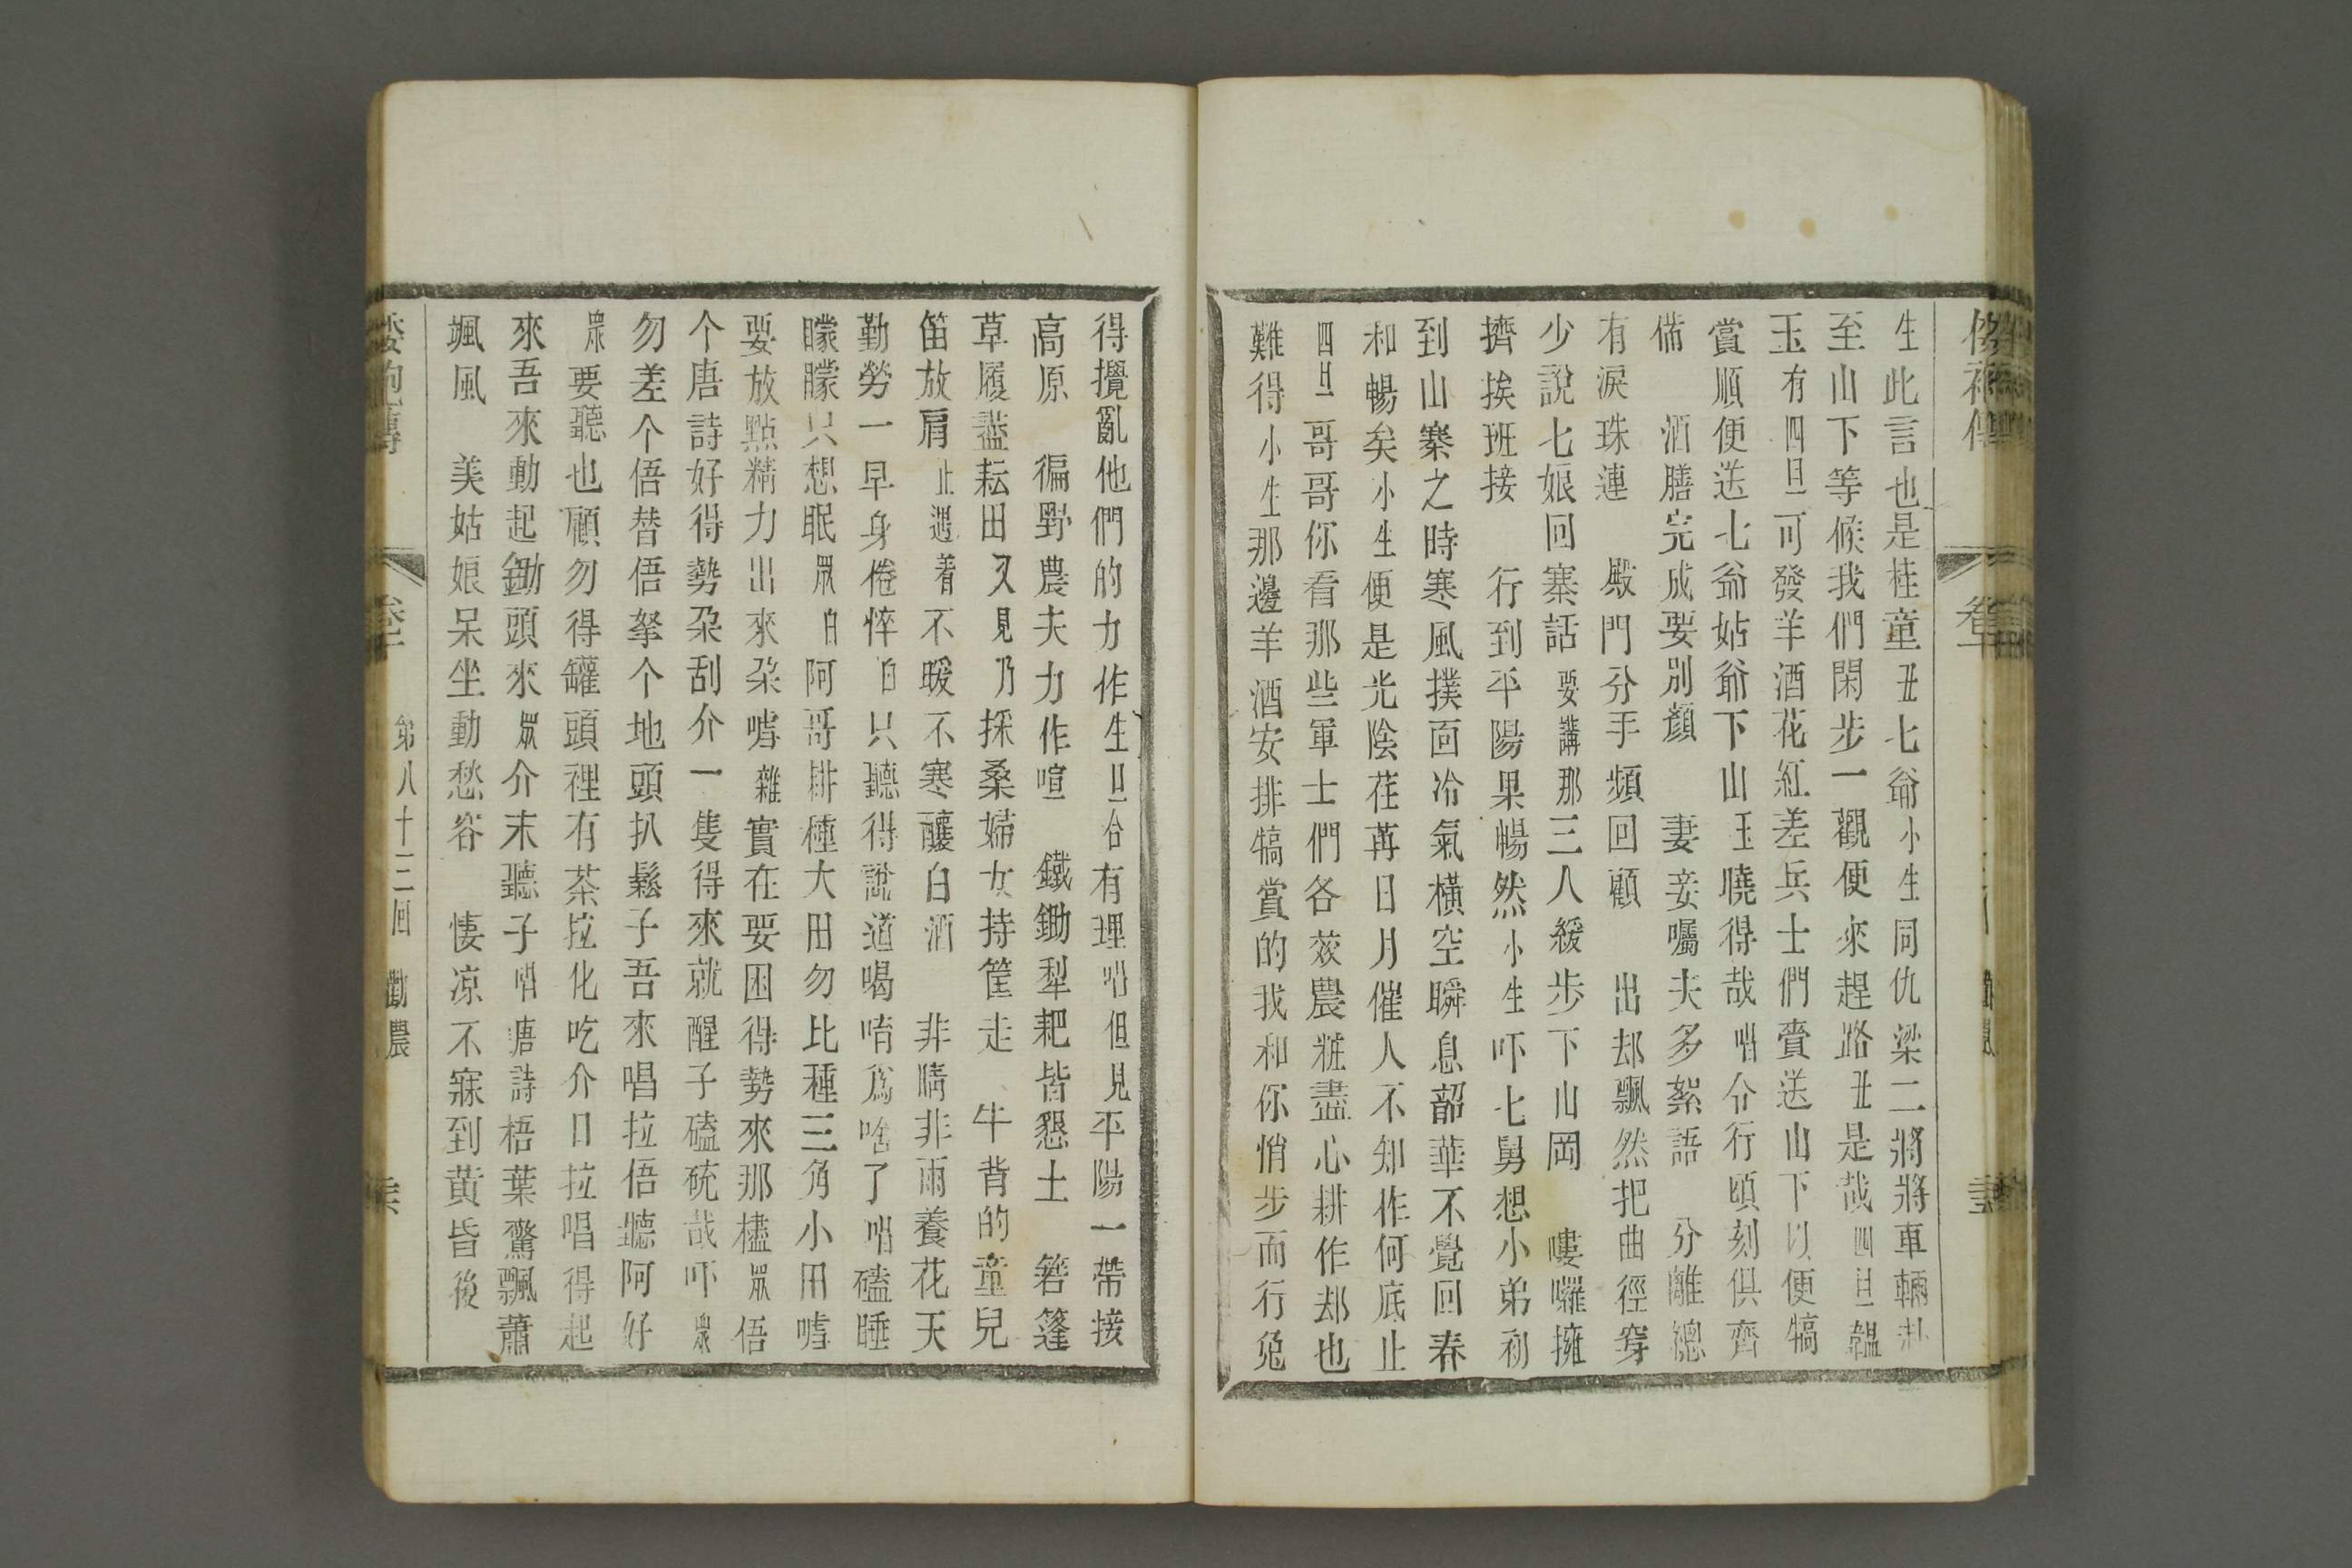 生此言也是桂童丑七爺小生同仇梁二將將車輛
至山下等候我們閑步一觀便來趕路丑是哉四旦
玉有四旦可發羊酒花紅差兵士們賫送山下以便犒
賞順便送七爺姑爺下山玉曉得哉唱介行頃刻俱齊
備 酒膳完成要別顏 妻妾囑夫多絮語 分離總
有淚珠連 殿門分手頻回顧 出却飄然把曲徑穿
少說七娘回寨話要講那三人緩步下山岡 嘍囉擁
擠挨班接 行到平陽果暢然小生吓七舅想小弟初
到山寨之時寒風撲面冷氣橫空瞬息韶華不覺回春
和暢矣小生便是光陰荏苒日月催人不知作何底止
四旦哥哥你看那些軍士們各效農粧盡心耕作却也
難得小生那邊羊酒安排犒賞的我和你悄步而行免
得攪亂他們的力作生旦合有理唱但見平陽一帶接
高原 徧野農夫力作喧 鐵鋤犁耙皆懇土 箬篷
草履盡耘田又見乃採桑婦女持筐走 牛背的童兒
笛放肩止遇着不暖不寒釀白酒 非晴非雨養花天
勤勞一早身倦悴白只聽得說道喝唷爲啥了唱磕睡
矇矇只想眠眾白阿哥耕種大田勿比種三角小田嘑
要放點精力出來朶嘑雜實在要困得勢來那櫨眾俉
个唐詩好得勢朶刮介一隻得來就醒子磕𥐻哉吓眾
勿差个俉替俉拏个地頭扒鬆子吾來唱拉俉聽阿好
眾要聽也顧勿得罐頭裡有茶拉化吃介口拉唱得起
來吾來動起鋤頭來眾介末聽子唱唐詩梧葉驚飄蕭
颯風 美姑娘呆坐動愁容 悽凉不寐到黃昏後
第八十三回 勸農